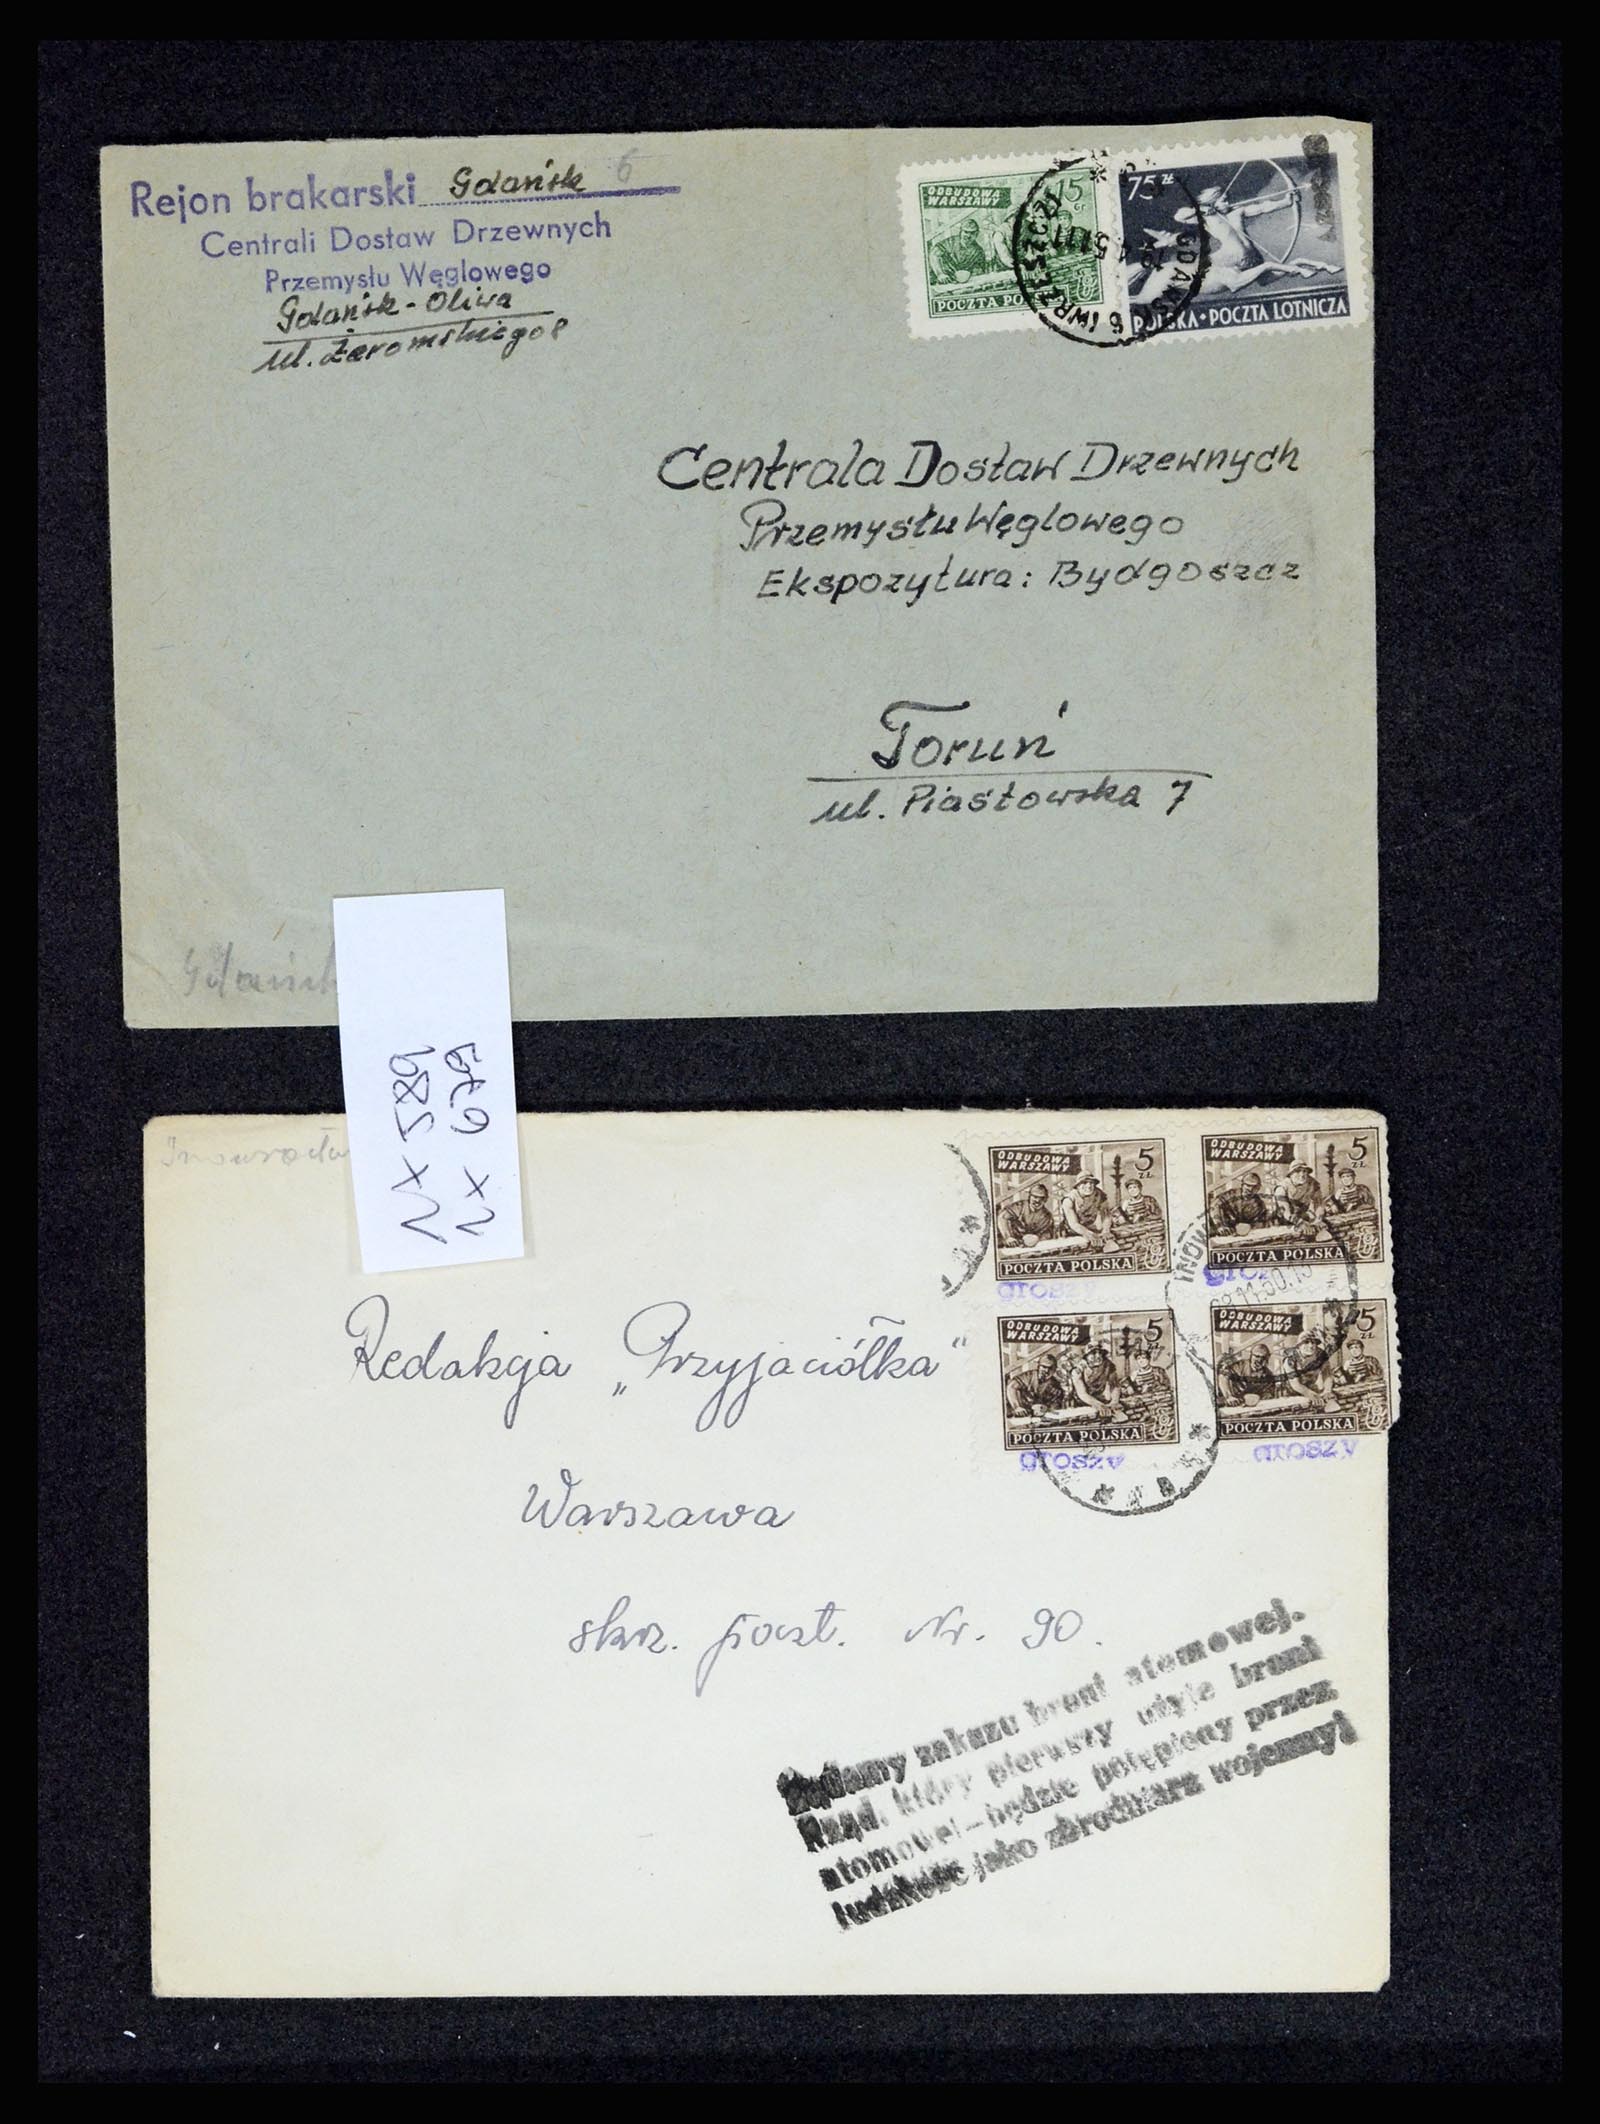 Rejon brakarski Gdańsk 6
Centrali Dostaw Drzewnych
Przemysłu Węglowego
Gdańsk-Oliwa
ul. Żeromskiego 8
ODBUDOWA
WARSZAWY
15
GR
POCZTA
75 ZŁ
POLSKA · POCZTA LOTNICZA
GDAŃSK 6
Centrala Dostaw Drzewnych
Przemysłu Węglowego
Ekspozytura: Bydgoszcz
Toruń
ul. Piastowska 7
Gdańsk
2 x 589
2 x 679
ODBUDOWA
WARSZAWY
5
ZŁ
POCZTA POLSKA
GROSZY
ODBUDOWA
WARSZAWY
5
ZŁ
POCZTA POLSKA
ODBUDOWA
WARSZAWY
5
ZŁ
POCZTA POLSKA
GROSZY
ODBUDOWA
WARSZAWY
5
ZŁ
POCZTA POLSKA
GROSZY
Redakcja „Przyjaciółka"
Warszawa
skrz. poczt. Nr. 90.
Żądamy zakazu broni atomowej.
Rząd, który pierwszy użyje broni
atomowej – będzie potępiony przez
ludzkość jako zbrodniarz wojenny!